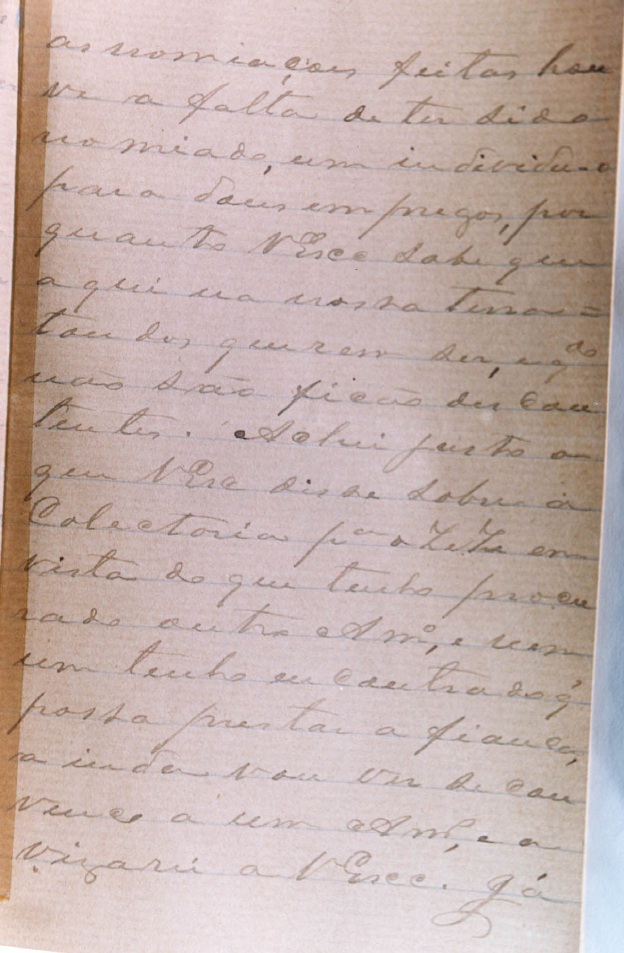 as nomiações feitas hou
ve a falta de ter sido
nomiado, um individuo
para dous empregos, por
quanto VExcᵃ sabe que
aqui na nossa terra =
tou dos querem ser, e qᵈᵒ
não são ficão des con
tentes. Achei justo o
que VExcᵃ disse sobre a
Colectoria pᵃ o ZéZé em
vista do que tenho procu
rado outro Amᵒ, e nem
um tenho encontrado q̃
possa prestar a fiança,
ainda vou ver se con
venço a um Amᵒ, e a
vizarei a VExcᵃ. Já